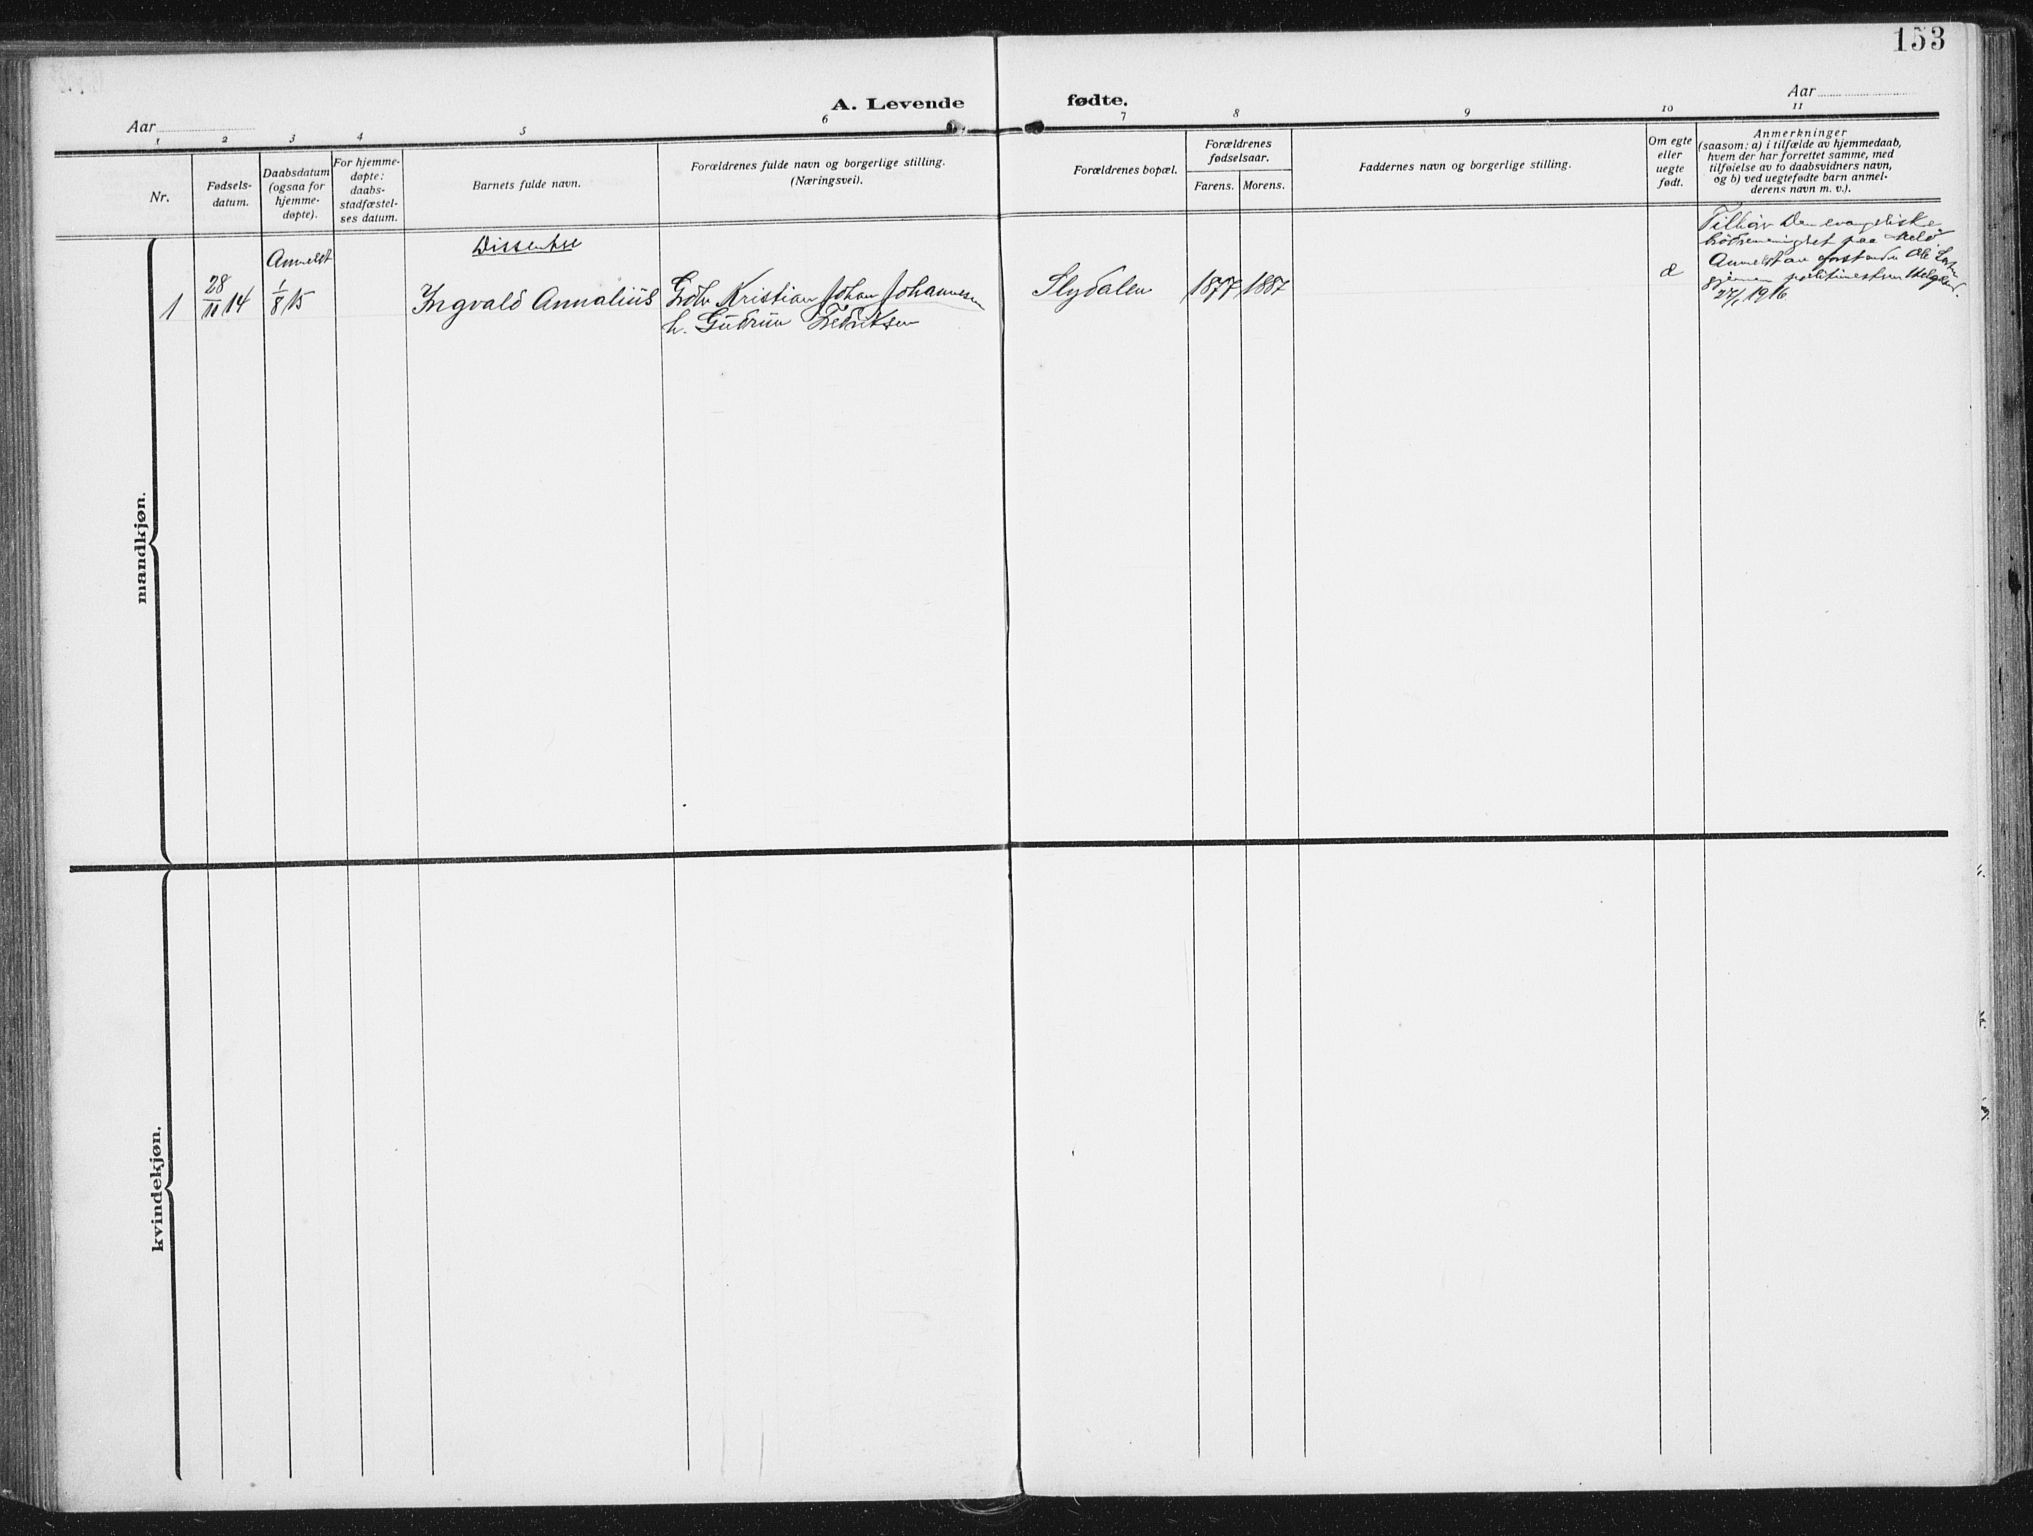 153
A. Levende fødte.
Aar
Aar
1 2 3 4 5 6 7 8 9 10 11
Nr.
Fødsels-
datum.
Daabsdatum
(ogsaa for
hjemme-
døpte).
For hjemme-
døpte:
daabs-
stadfæstel-
ses datum.
Barnets fulde navn.
Forældrenes fulde navn og borgerlige stilling.
(Næringsvei).
Forældrenes bopæl.
Forældrenes
fødselsaar.
Farens. Morens.
Faddernes navn og borgerlige stilling.
Om egte
eller
uegte
født.
Anmerkninger
(saasom: a) i tilfælde av hjemmedaab,
hvem der har forrettet samme, med
tilføielse av to daabsvidners navn,
og b) ved uegtefødte barn anmel-
derens navn m. v.).
mandkjøn.
Anmeldt
Dissenter
1
28/11 14
1/8 15
Ingvald Annalius
Kristian Johan Johannesen
h. Gudrun Fredriksen
Slydalen
1877
1887
Tilhør Den evangeliske
paa
Anmeldt av forstander Ole
gjennem politimesteren Helgeland.
27/1 1916
kvindekjøn.